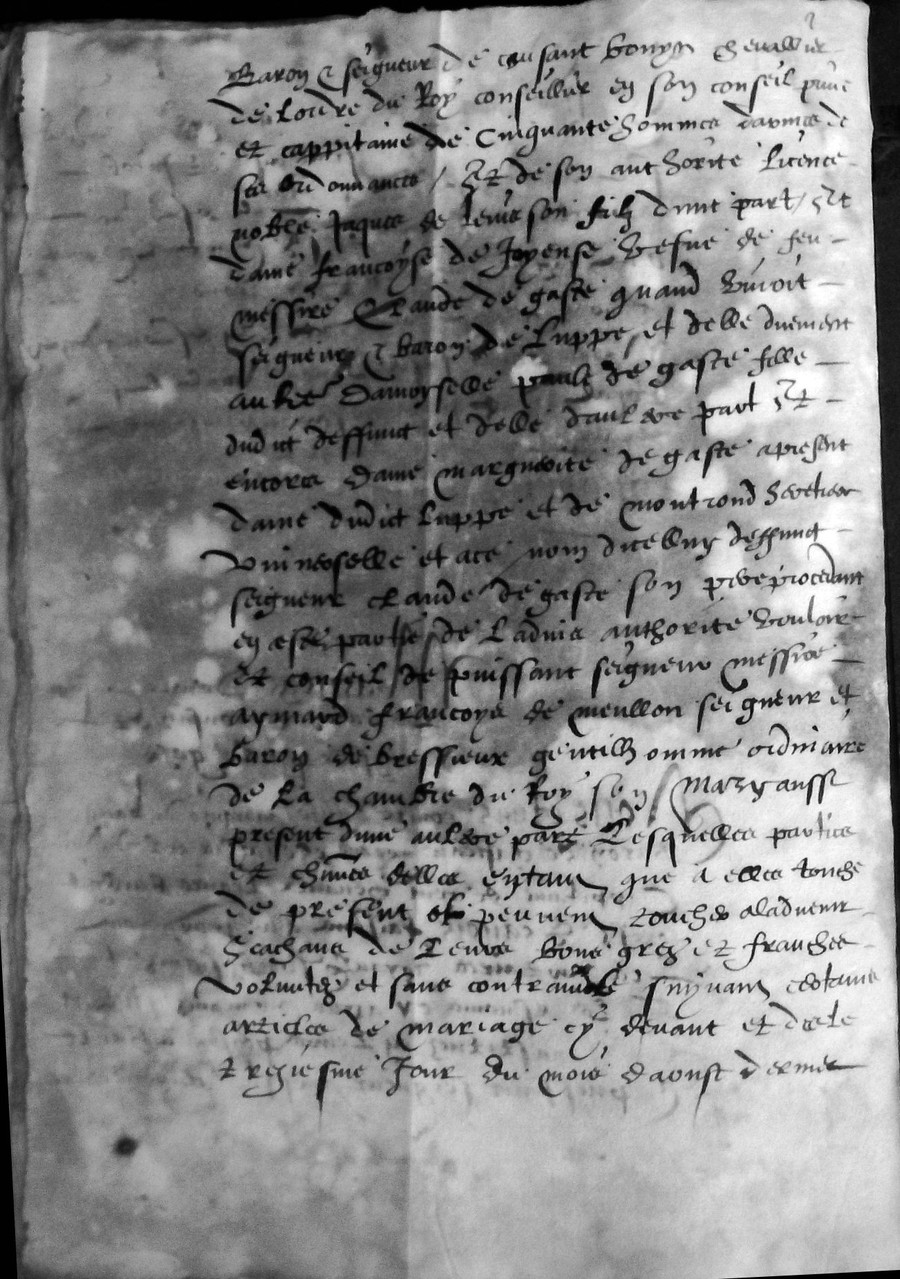 Baron & seigneur de cousant bouyn chevallier
de lordre du Roy conseillier en son conseil prive
et cappitaine de Cinquante hommes darmes de
ses ordonnances / Et de son authorite licence
noble Jaques de levis son filz dune part / Et
dame francoyse de Joyeuse vefve de feu
messire Claude de gaste quand vivoit
seigneur & baron de Luppe, et delle duement
auctee damoyselle paule de gaste fille
dudict deffunct et delle daultre part Et
encores dame marguerite de gaste apresent
dame dudict luppe et de montrond heretiere
universelle et ace nom dicelluy deffunct
seigneur claude de gaste son pere procedant
en ceste partie de Ladvis authorite vouloir
et conseil de puissant seigneur messire
aymard francoys de meullon seigneur et
baron de bressieux gentilhomme ordinaire
de La chambre du Roy son
present dune aultre part Lesquelles parties
et chunes delles eytant que a elles touche
de present et peuvent toucher aladvenir
Scachans de Leurs bons grez et franches
voluntez et sans contraincte suyvant certains
articles de mariage cy devant et des le
treziesme Jour du mois daoust dernier